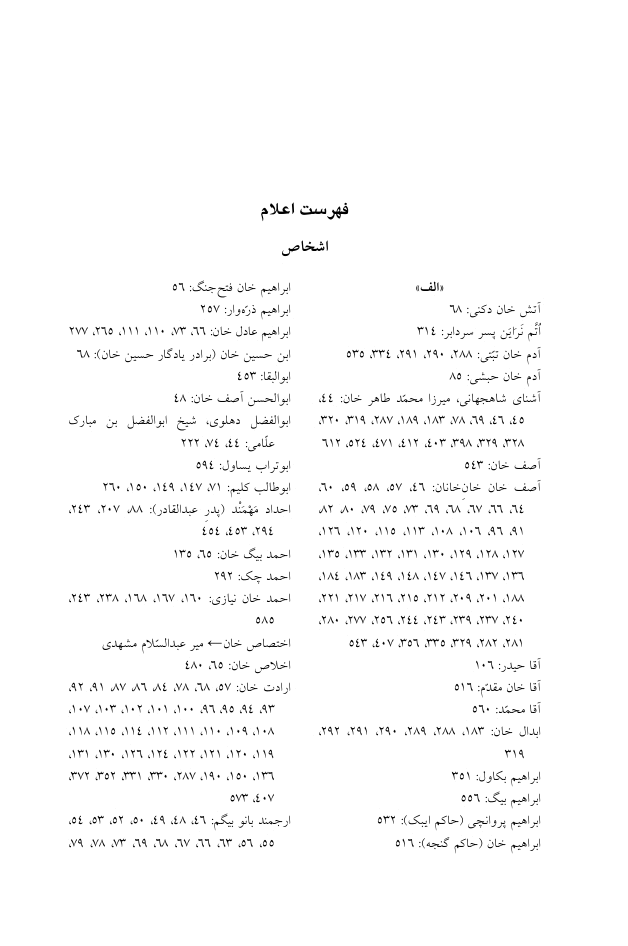 فهرست اعلام
اشخاص
«الف»
آتش خان دکنی: ٦٨
اُتَّم نَرَایَن پسر سردابر: ٣١٤
آدم خان تبّتی: ٢٨٨، ٢٩٠، ٢٩١، ٣٣٤، ٥٣٥
آدم خان حبشی: ٨٥
آشنای شاهجهانی، میرزا محمّد طاهر خان: ٤٤،
٤٥، ٤٦، ٦٩، ٧٨، ١٨٣، ١٨٩، ٢٨٧، ٣١٩، ٣٢٠،
٣٢٨، ٣٢٩، ٣٩٨، ٤٠٣، ٤١٢، ٤٧١، ٥٢٤، ٦١٢
آصف خان: ٥٤٣
آصف خان خانِ‌خانان: ٤٦، ٥٧، ٥٨، ٥٩، ٦٠،
٦٤، ٦٦، ٦٧، ٦٨، ٦٩، ٧٣، ٧٥، ٧٩، ٨٠، ٨٢،
٩١، ٩٦، ١٠٦، ١٠٨، ١١٣، ١١٥، ١٢٠، ١٢٦،
١٢٧، ١٢٨، ١٢٩، ١٣٠، ١٣١، ١٣٢، ١٣٣، ١٣٥،
١٣٦، ١٣٧، ١٤٦، ١٤٧، ١٤٨، ١٤٩، ١٨٣، ١٨٤،
١٨٨، ٢٠١، ٢٠٩، ٢١٢، ٢١٥، ٢١٦، ٢١٧، ٢٢١،
٢٤٠، ٢٣٧، ٢٣٩، ٢٤٣، ٢٤٤، ٢٥٦، ٢٧٧، ٢٨٠،
٢٨١، ٢٨٢، ٣٢٩، ٣٣٥، ٣٥٦، ٤٠٧، ٥٤٣
آقا حیدر: ١٠٦
آقا خان مقدّم: ٥١٦
آقا محمّد: ٥٦٠
ابدال خان: ١٨٣، ٢٨٨، ٢٨٩، ٢٩٠، ٢٩١، ٢٩٢،
٣١٩
ابراهیم بکاول: ٣٥١
ابراهیم بیگ: ٥٥٦
ابراهیم پروانچی (حاکم ایبک): ٥٣٢
ابراهیم خان (حاکم گنجه): ٥١٦
ابراهیم خان فتح‌جنگ: ٥٦
ابراهیم ذرّه‌وار: ٢٥٧
ابراهیم عادل خان: ٦٦، ٧٣، ١١٠، ١١١، ٢٦٥، ٢٧٧
ابن حسین خان (برادر یادگار حسین خان): ٦٨
ابوالبقا: ٤٥٣
ابوالحسن آصف خان: ٤٨
ابوالفضل دهلوی، شیخ ابوالفضل بن مبارک
علّامی: ٤٤، ٧٤، ٢٢٢
ابوتراب یساول: ٥٩٤
ابوطالب کلیم: ٧١، ١٤٧، ١٤٩، ١٥٠، ٢٦٠
احداد مَهْمَنْد (پدرِ عبدالقادر): ٨٨، ٢٠٧، ٢٤٣،
٢٩٤، ٤٥٣، ٤٥٤
احمد بیگ خان: ٦٥، ١٣٥
احمد چک: ٢٩٢
احمد خان نیازی: ١٦٠، ١٦٧، ١٦٨، ٢٣٨، ٢٤٣،
٥٨٥
اختصاص خان← میر عبدالسّلام مشهدی
اخلاص خان: ٦٥، ٤٨٠
ارادت خان: ٥٧، ٦٨، ٧٨، ٨٤، ٨٦، ٨٧، ٩١، ٩٢،
٩٣، ٩٤، ٩٥، ٩٦، ١٠٠، ١٠١، ١٠٢، ١٠٣، ١٠٧،
١٠٨، ١٠٩، ١١٠، ١١١، ١١٢، ١١٤، ١١٥، ١١٨،
١١٩، ١٢٠، ١٢١، ١٢٢، ١٢٤، ١٢٦، ١٣٠، ١٣١،
١٣٦، ١٥٠، ١٩٠، ٢٨٧، ٣٣٠، ٣٣١، ٣٥٢، ٣٧٢،
٤٠٧، ٥٧٣
ارجمند بانو بیگم: ٤٦، ٤٨، ٤٩، ٥٠، ٥٢، ٥٣، ٥٤،
٥٥، ٥٦، ٦٣، ٦٦، ٦٧، ٦٨، ٦٩، ٧٣، ٧٨، ٧٩،